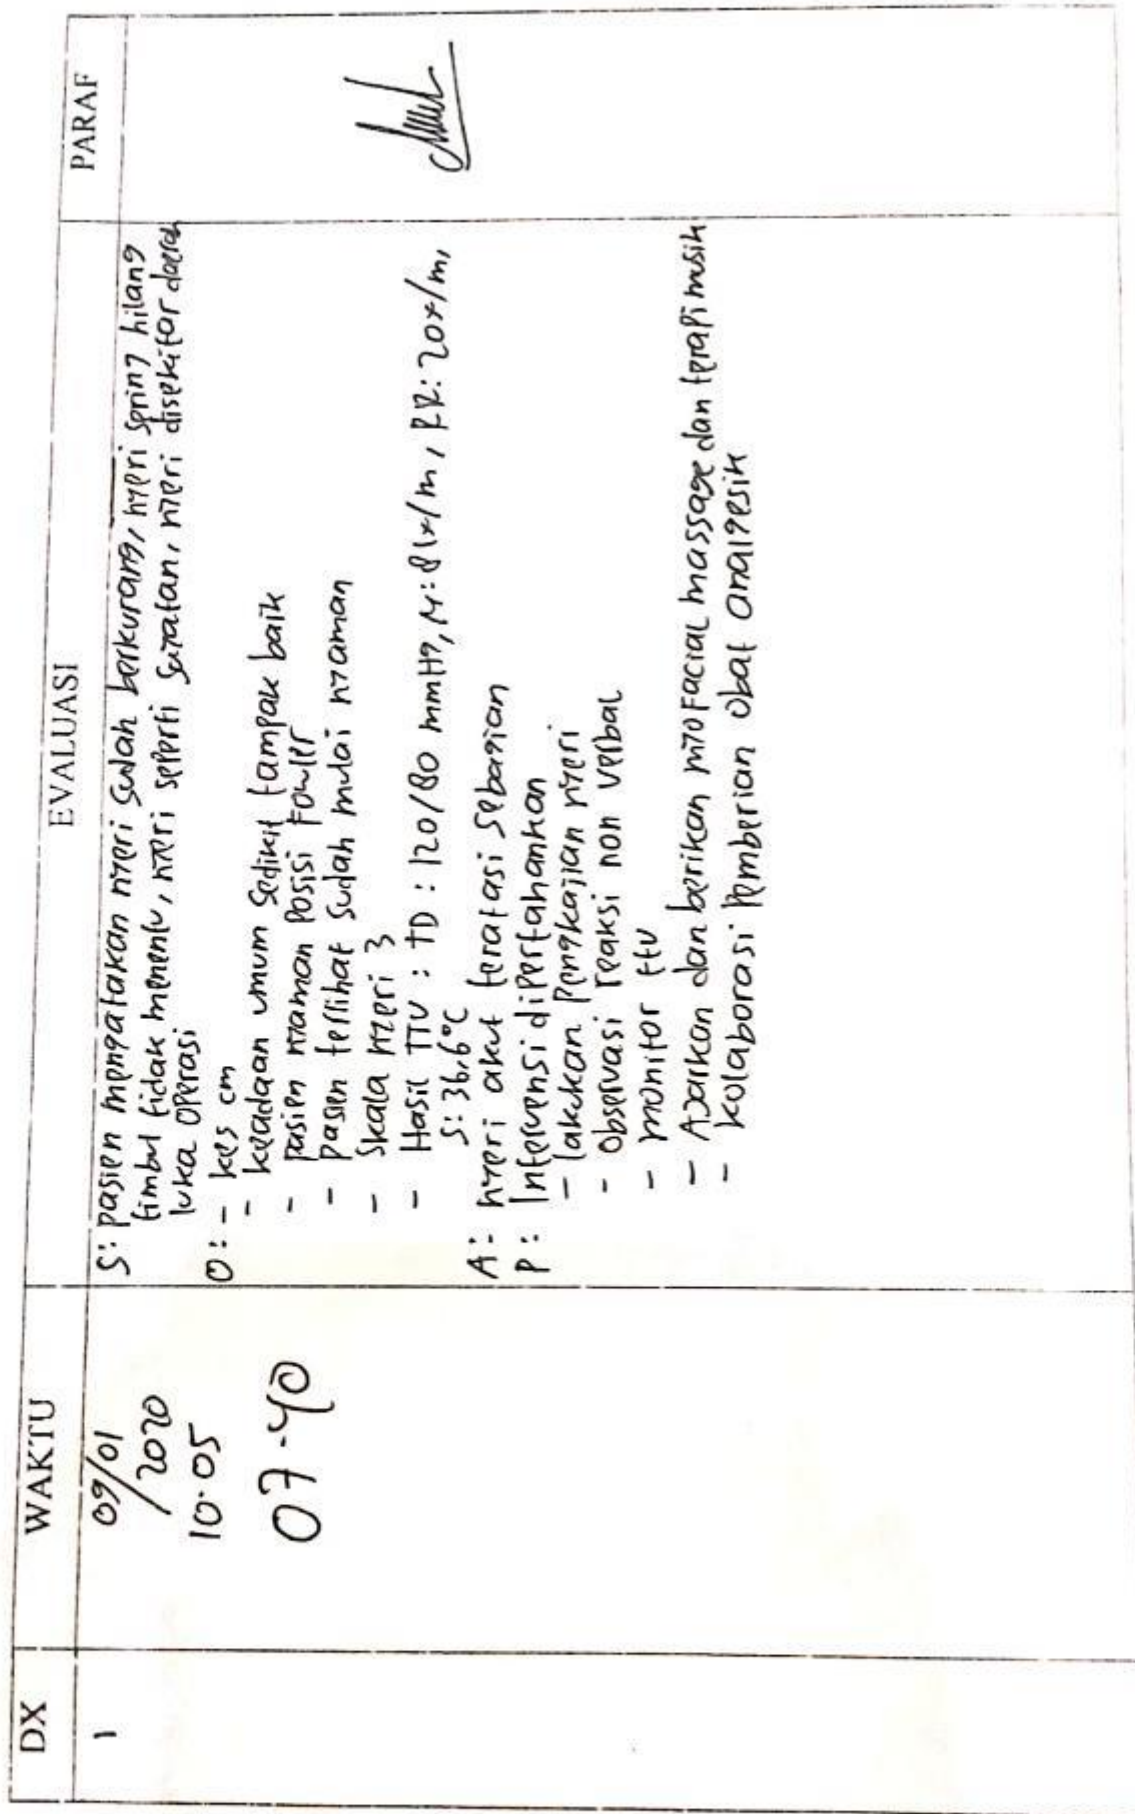 DX WAKTU EVALUASI PARAF
1
09/01
/2020
10.05
07-40
S: pasien mengatakan nyeri sudah berkurang, nyeri sering hilang
timbul tidak menentu, nyeri seperti sayatan, nyeri disekitar daerah
luka operasi
O: - kes cm
- keadaan umum sedikit tampak baik
- pasien nyaman posisi Fowler
- pasien terlihat sudah mulai nyaman
- Skala nyeri 3
- Hasil TTV : TD : 120/80 mmHg, N: 81x/m, RR: 20x/m,
S: 36,6°C
A: nyeri akut teratasi sebagian
P: Intervensi dipertahankan
- lakukan pengkajian nyeri
- Observasi reaksi non verbal
- monitor ttv
- Ajarkan dan berikan myofacial massage dan terapi musik
- kolaborasi pemberian obat analgesik